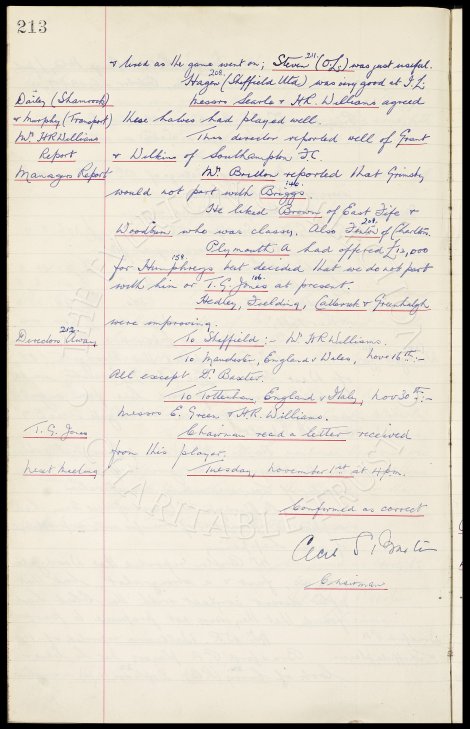 213
& tired as the game went on; Steven (O.L.) was just useful.
211.
Hagan (Sheffield Utd) was very good at I.L.
208.
Messrs Searle & H.R. Williams agreed
Dailey (Shamrock)
& Murphy (Transport) these halves had played well.
Mr. H R Williams
This director reported well of Grant
Report
& Wilkins of Southampton FC
Managers Report
Mr. Britton reported that Grimsby
would not part with Briggs
146.
He liked Brown of East Fife &
Woodburn who was classy. Also Fenton of Charlton.
208.
Plymouth A had offered £12,000
for Humphreys but decided that we do not part
158.
with him or T. G. Jones at present.
166.
Hedley, Fielding, Catterick & Greenhalgh
were improving.
Directors Away
212.
To Sheffield :- Mr H R Williams.
To Manchester, England v Wales, Nov 16th :-
All except Dr. Baxter.
To Tottenham, England v Italy, Nov 30th :-
Messrs E. Green & H.R. Williams.
T. G. Jones
Chairman read a letter received
from this player.
Next Meeting
Tuesday, November 1st at 4pm.
Confirmed as correct
Cecil S. Baxter
Chairman
CHARITABLE TRUST